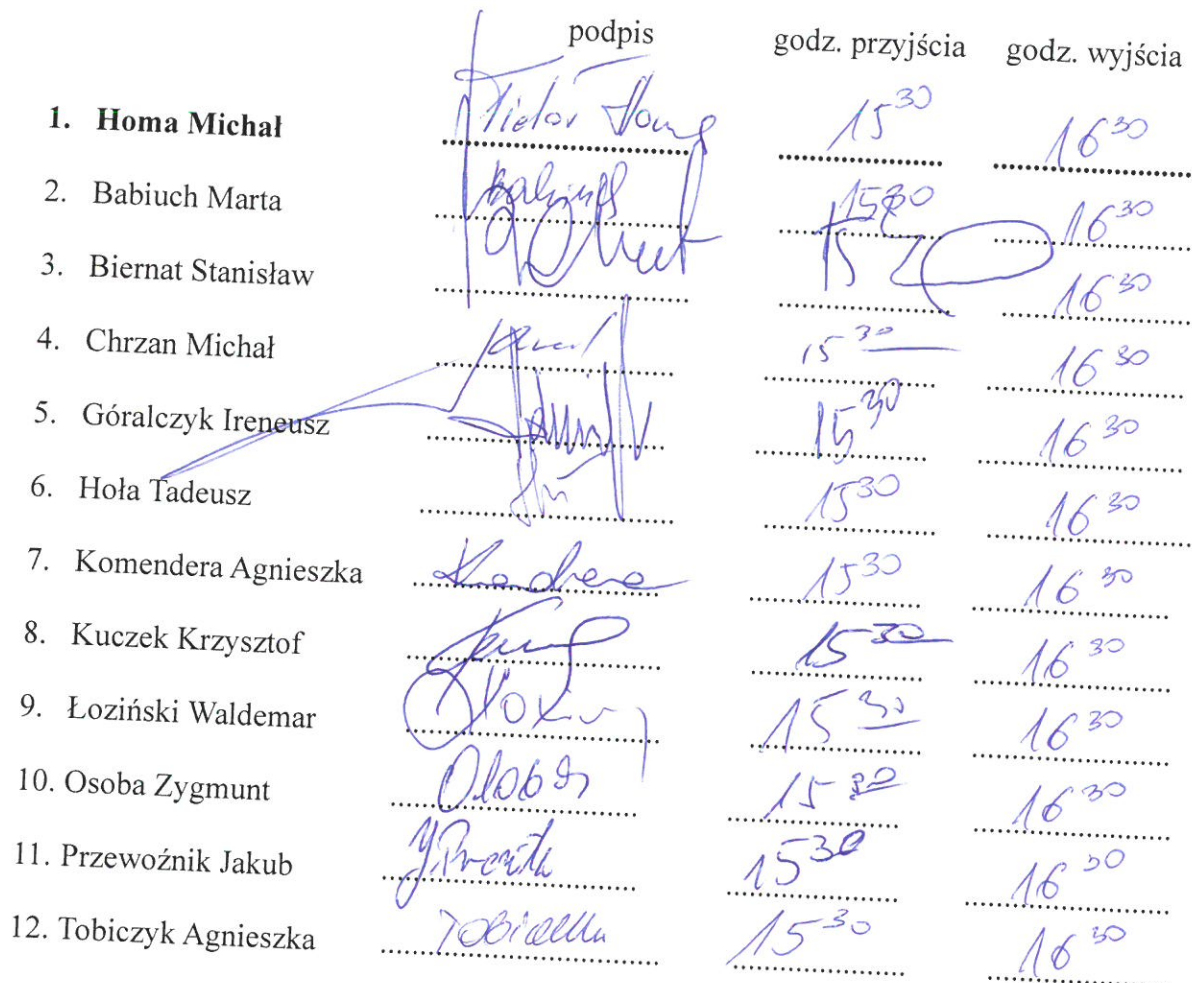 podpis godz. przyjścia godz. wyjścia
1. Homa Michał 15³⁰ 16³⁰
2. Babiuch Marta 15³⁰ 16³⁰
3. Biernat Stanisław 16³⁰
4. Chrzan Michał 15³⁰ 16³⁰
5. Góralczyk Ireneusz 15³⁰ 16³⁰
6. Hoła Tadeusz 15³⁰ 16³⁰
7. Komendera Agnieszka 15³⁰ 16³⁰
8. Kuczek Krzysztof 15³⁰ 16³⁰
9. Łoziński Waldemar 15³⁰ 16³⁰
10. Osoba Zygmunt 15³⁰ 16³⁰
11. Przewoźnik Jakub 15³⁰ 16³⁰
12. Tobiczyk Agnieszka 15³⁰ 16³⁰